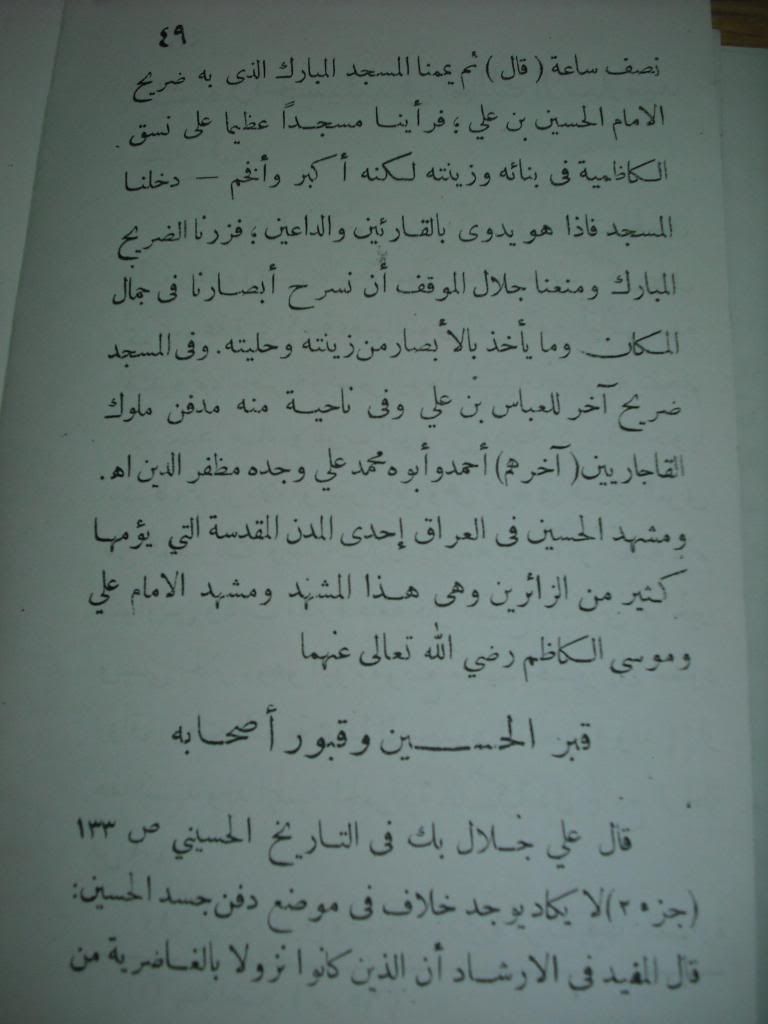 ٤٩
نصف ساعة ( قال ) ثم يممنا المسجد المبارك الذى به ضريح
الامام الحسين بن علي ؛ فرأينا مسجداً عظيما على نسق
الكاظمية فى بنائه وزينته لكنه أكبر وأفخم — دخلنا
المسجد فاذا هو يدوى بالقارئين والداعين ؛ فزرنا الضريح
المبارك ومنعنا جلال الموقف أن نسرح أبصارنا فى جمال
المكان وما يأخذ بالأبصار من زينته وحليته. وفى المسجد
ضريح آخر للعباس بن علي وفى ناحية منه مدفن ملوك
القاجاريين ( آخرهم ) أحمد وأبوه محمد علي وجده مظفر الدين اه .
ومشهد الحسين فى العراق إحدى المدن المقدسة التي يؤمها
كثير من الزائرين وهى هذا المشهد ومشهد الامام علي
وموسى الكاظم رضي الله تعالى عنهما
قبر الحسين وقبور أصحابه
قال علي جلال بك فى التاريخ الحسيني ص ١٣٣
(جزء ٢) لا يكاد يوجد خلاف فى موضع دفن جسد الحسين :
قال المفيد فى الارشاد أن الذين كانوا نزولا بالغاضرية من